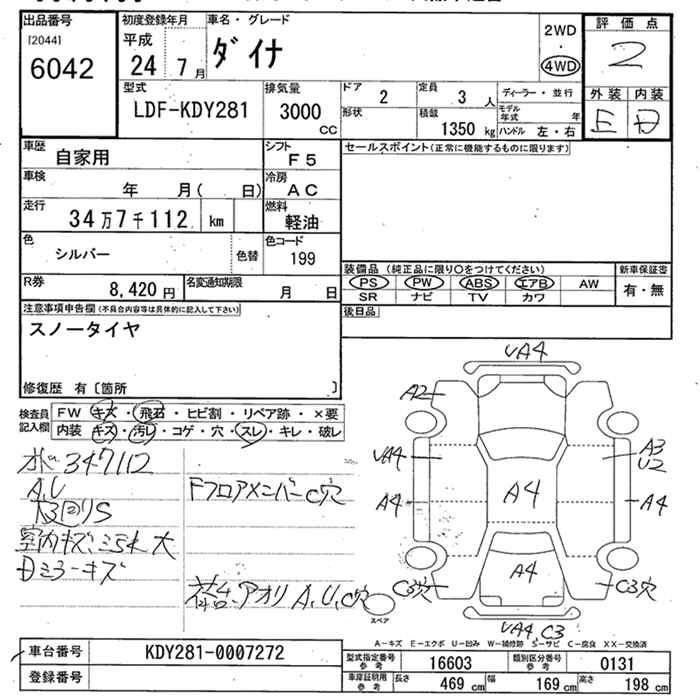 出品番号
[2044]
6042
初度登録年月
平成
24年7月
車名・グレード
ダイナ
2WD
・
4WD
評価点
2
外装 内装
E D
型式
LDF-KDY281
排気量
3000
CC
ドア
2
定員
3人
ディーラー・並行
形状
積載
1350 kg
モデル年式 年
ハンドル 左・右
車歴
自家用
シフト
F5
セールスポイント(正常に機能するものに限ります)
車検
年 月( 日)
冷房
AC
走行
34万7千112 km
燃料
軽油
色
シルバー
色替
色コード
199
R券
8,420円
名変通知期限
月 日
装備品 (純正品に限り○をつけてください)
PS PW ABS エアB AW
SR ナビ TV カワ
新車保証書
有・無
後日品
注意事項申告欄(不具合内容等は具体的に記入して下さい)
スノータイヤ
修復歴 有〔箇所 〕
検査員記入欄
FW キズ・飛石・ヒビ割・リペア跡・×要
内装 キズ・汚レ・コゲ・穴・スレ・キレ・破レ
347112
A,U
S
室内キズ、ヨゴレ大
Dミラーキズ
Fフロアメンバー C穴
アオリ A,U,C穴
VA4
A2
VA4
A4
A4
A3
U2
A4
A4
C3穴
C3穴
VA4,C3
スペア
A-キズ E-エクボ U-凹み W-補修跡 S-サビ C-腐食 XX-交換済
車台番号
KDY281-0007272
登録番号
型式指定番号 参考
16603
類別区分番号 参考
0131
車庫証明用 参考
長さ 469 cm
幅 169 cm
高さ 198 cm